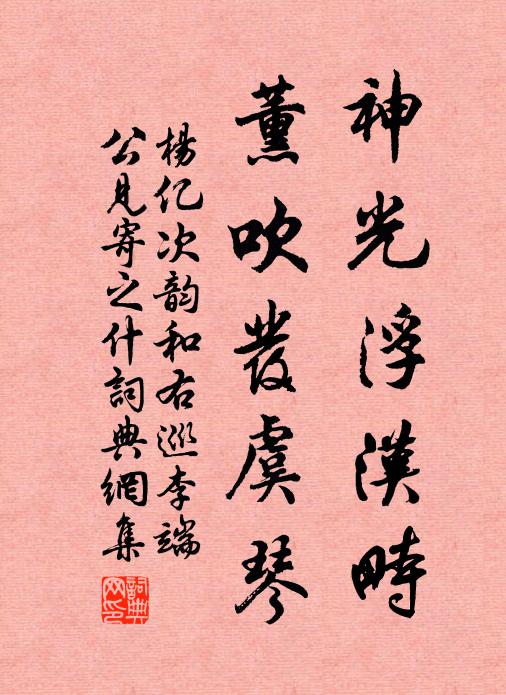 神光浮漢畤
薰吹發虞琴
楊亿次韵和右巡李端
公見寄之什詞典網集
詞典网印